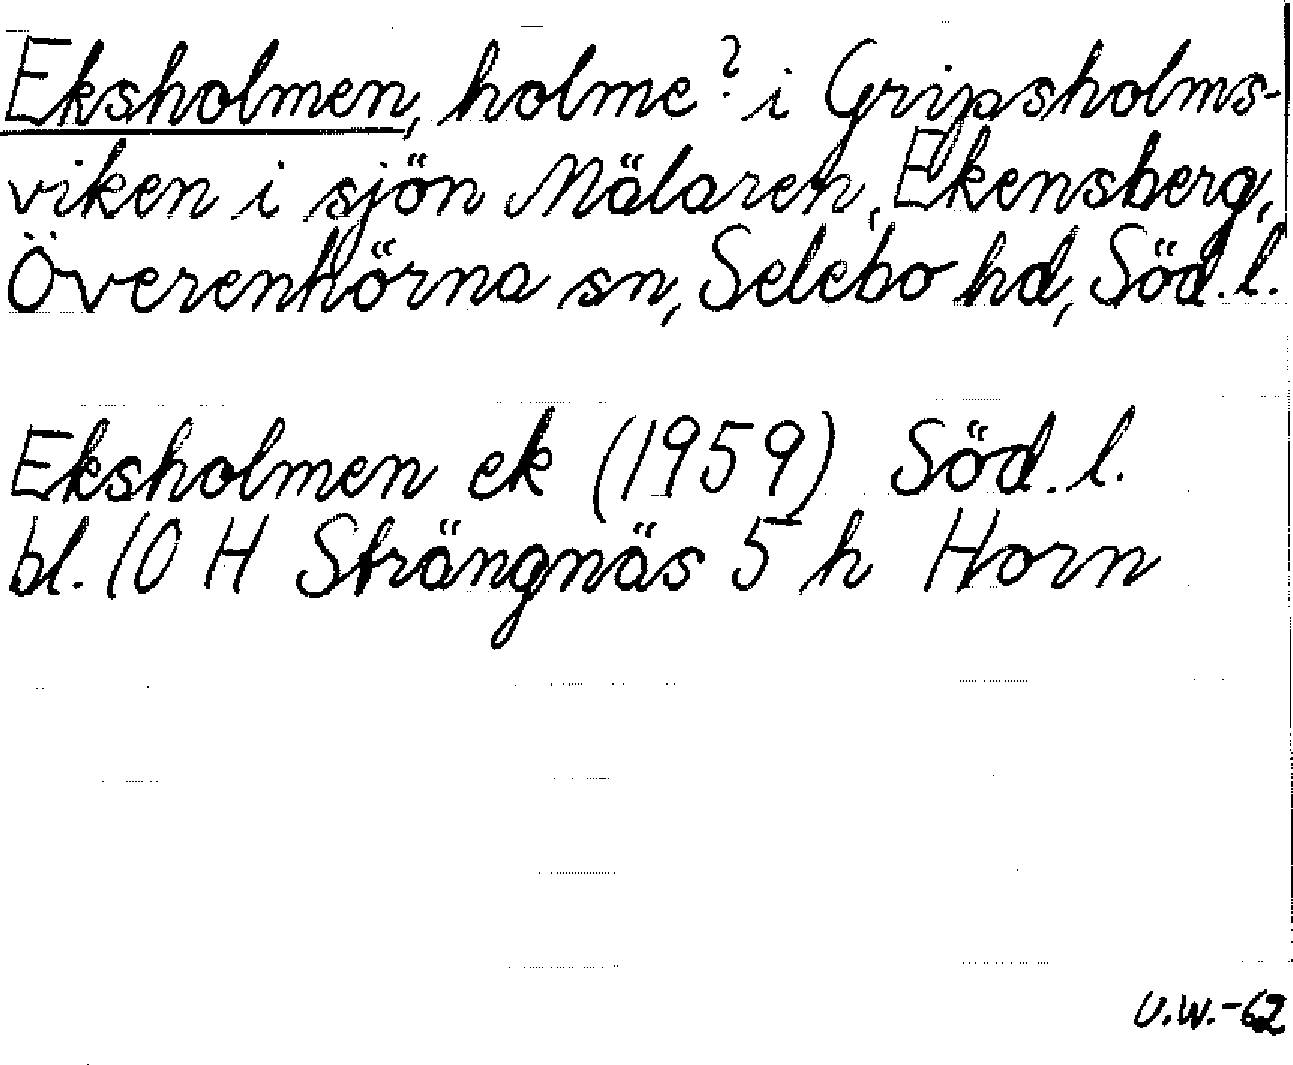 Eksholmen, holme? i Gripsholms-
viken i sjön Mälaren, Ekensberg,
Överenhörna sn, Selebo hd, Söd. l.
Eksholmen ek (1959) Söd. l.
bl. 10 H Strängnäs 5 h Horn
U.W.-62